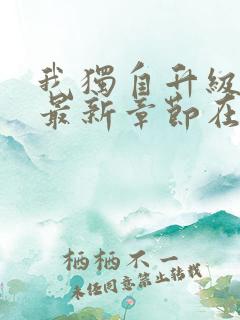 我獨自升級
最新章節在
栖栖不一
未经同意禁止转载